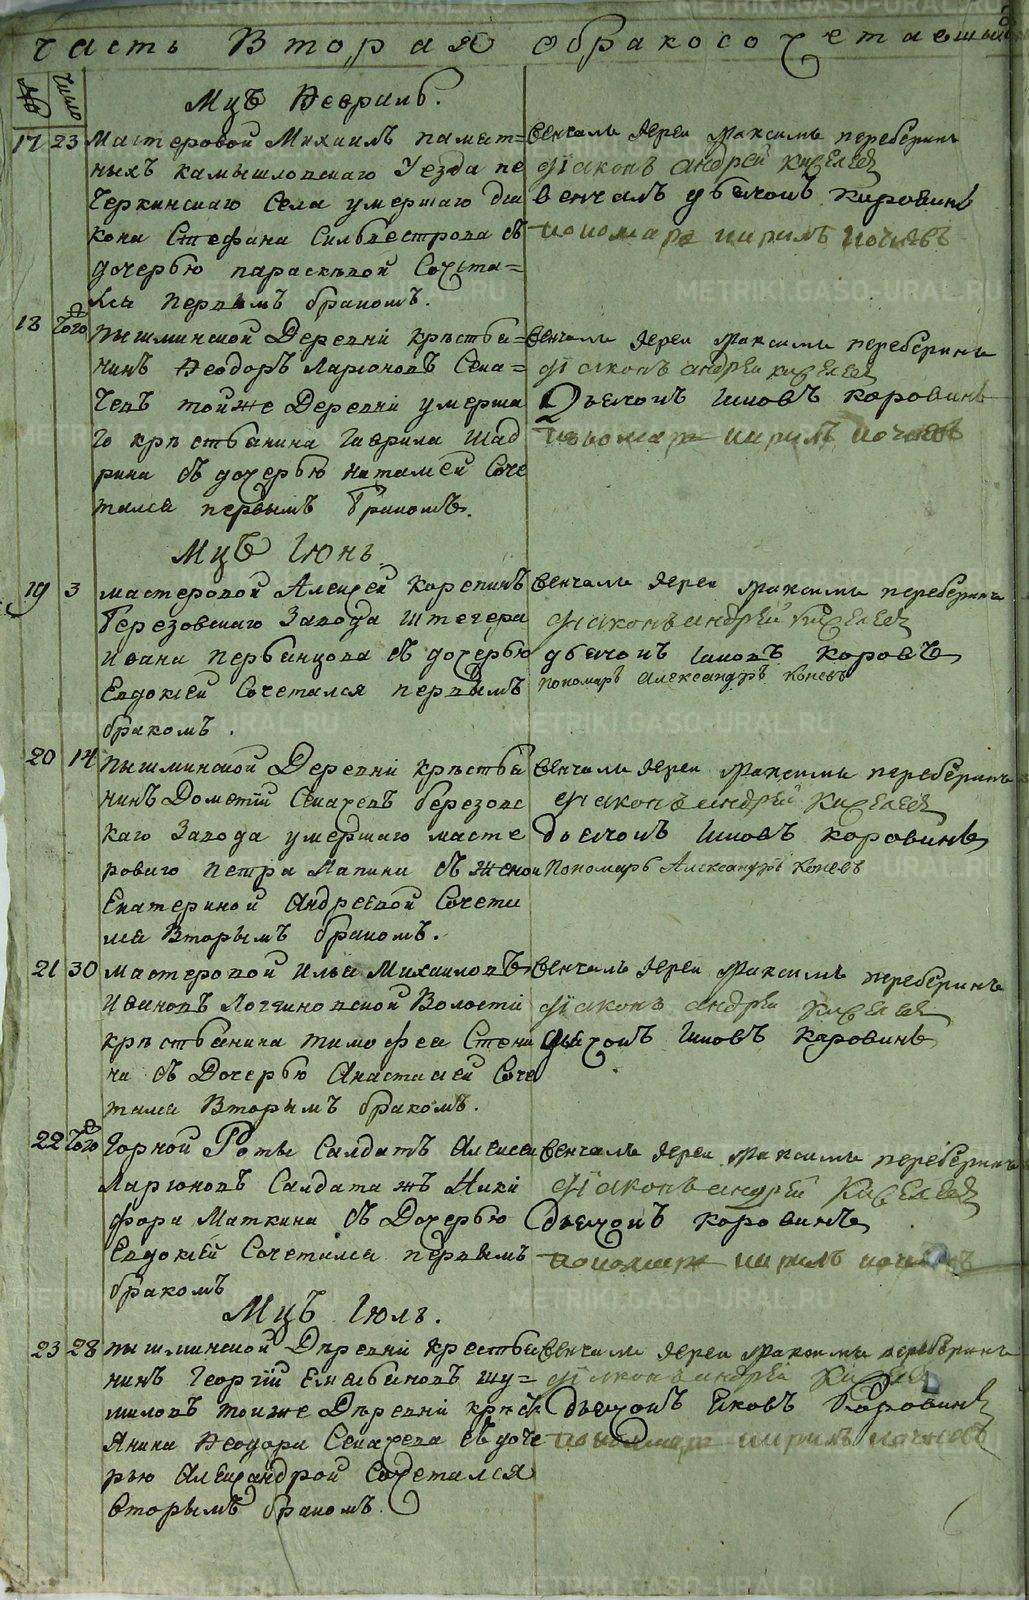 часть Вторая обракосочетавши
№ число
Мцъ Февраль.
17 23 Мастеровой Михаилъ памят=
ныхъ камышловскаго Уезда пе
Черкинскаго Села умершаго дья
кона Стефана Сильвестрова съ
дочерью параскевой Сочета=
лся первымъ бракомъ.
венчалъ Иереи Максимъ переберинъ
диаконъ андрей Киселевъ
венчалъ дьячокъ Коровинъ
пономарь кирилъ
18 того пышминской Деревни крѣстья=
нинъ Феодоръ Ларионовъ Сена=
чевъ тойже Деревни умерша
го крѣстьянина гаврила Шад
рина съ дочерью наталѣей Соче
тался первымъ бракомъ.
Венчалъ Иереи Максимъ переберинъ
диаконъ андрей киселевъ
Дьячокъ Иаковъ коровинъ
пономарь кирилъ
Мцъ Июнь
19 3 мастеровой Алексѣй Корепинъ
Березовскаго Завода штегера
Ивана первянцова съ дочерью
Евдокіей Сочетался первымъ
бракомъ.
Венчалъ Иереи Максимъ переберинъ
диаконъ андрей Киселевъ
дьячокъ Иаковъ коровъ
пономаръ Александръ Коневъ
20 14 пышминской Деревни крѣстья
нинъ Дометій Сенаревъ березовс
каго Завода умершаго масте
роваго петра Лапина съ женои
Екатериной Андреевой Сочета
лся Вторымъ бракомъ.
Венчалъ Иереи Максимъ переберинъ
диаконъ андрей Киселевъ
дьячокъ Иаковъ коровинъ
Пономаръ Александръ Коневъ
21 30 мастеровой илья Михаиловъ
Ивановъ Логиновской Волости
крѣстьянина тимофея Степа
на съ Дочерью Анастасіей Соче
тался Вторымъ бракомъ.
Венчалъ Иереи Максимъ переберинъ
диаконъ андрей Киселевъ
дьячокъ Иаковъ Коровинъ
22 того Горной Роты Салдатъ Алексеи
Ларионовъ Салдата жъ Ники
фора Маткина съ Дочерью
Евдокіей Сочетался первымъ
бракомъ
Венчалъ Иереи Максимъ переберинъ
диаконъ андрей Киселевъ
Дьячокъ коровинъ
пономарь кирилъ
Мцъ Июль.
23 28 пышминской Дѣревни крестья
нинъ Георгій Емельяновъ шу=
миловъ тойже Дѣревни крѣсть
янина Феодора Сенарева съ доче
рью Александрой Сочетался
вторымъ бракомъ
Венчалъ Иереи Максимъ переберинъ
диаконъ андрей
Дьячокъ Яковъ Коровинъ
пономарь кирилъ